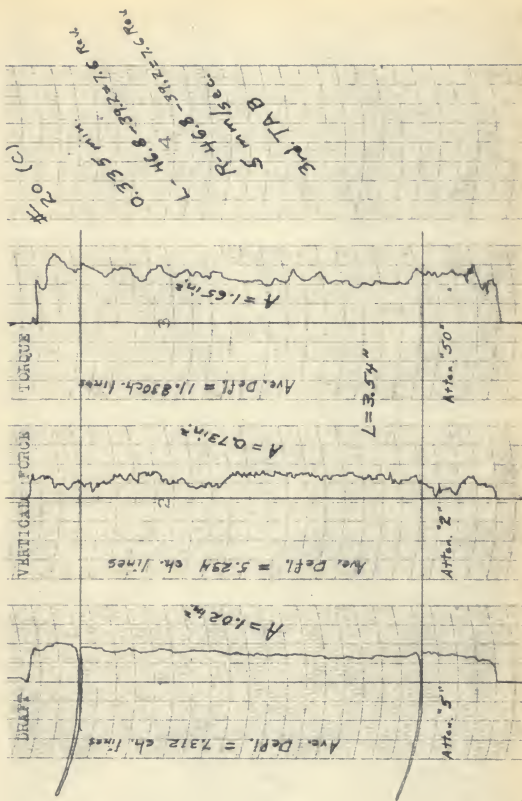 #20 (C)
0.335 min.
L-46.8-39.2=7.6 Rev.
R-46.8-39.2=7.6 Rev
5 mm/sec.
3rd. TAB
TORQUE
3
A=1.65 in.²
Ave. Defl. = 11.830 ch. lines
L=3.54"
Atten. "50"
VERTICAL FORCE
2
A=0.73 in.²
Ave. Defl. = 5.234 ch. lines
Atten. "2"
DRAFT
1
A=1.02 in.²
Ave. Defl. = 7.312 ch. lines
Atten. "5"